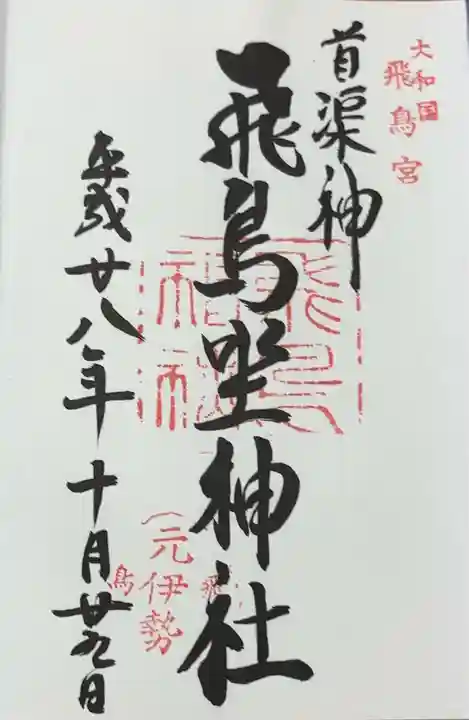 大和国
飛鳥宮
首渠神
飛鳥坐神社
(元伊勢
飛
鳥
平成廿八年十月廿九日